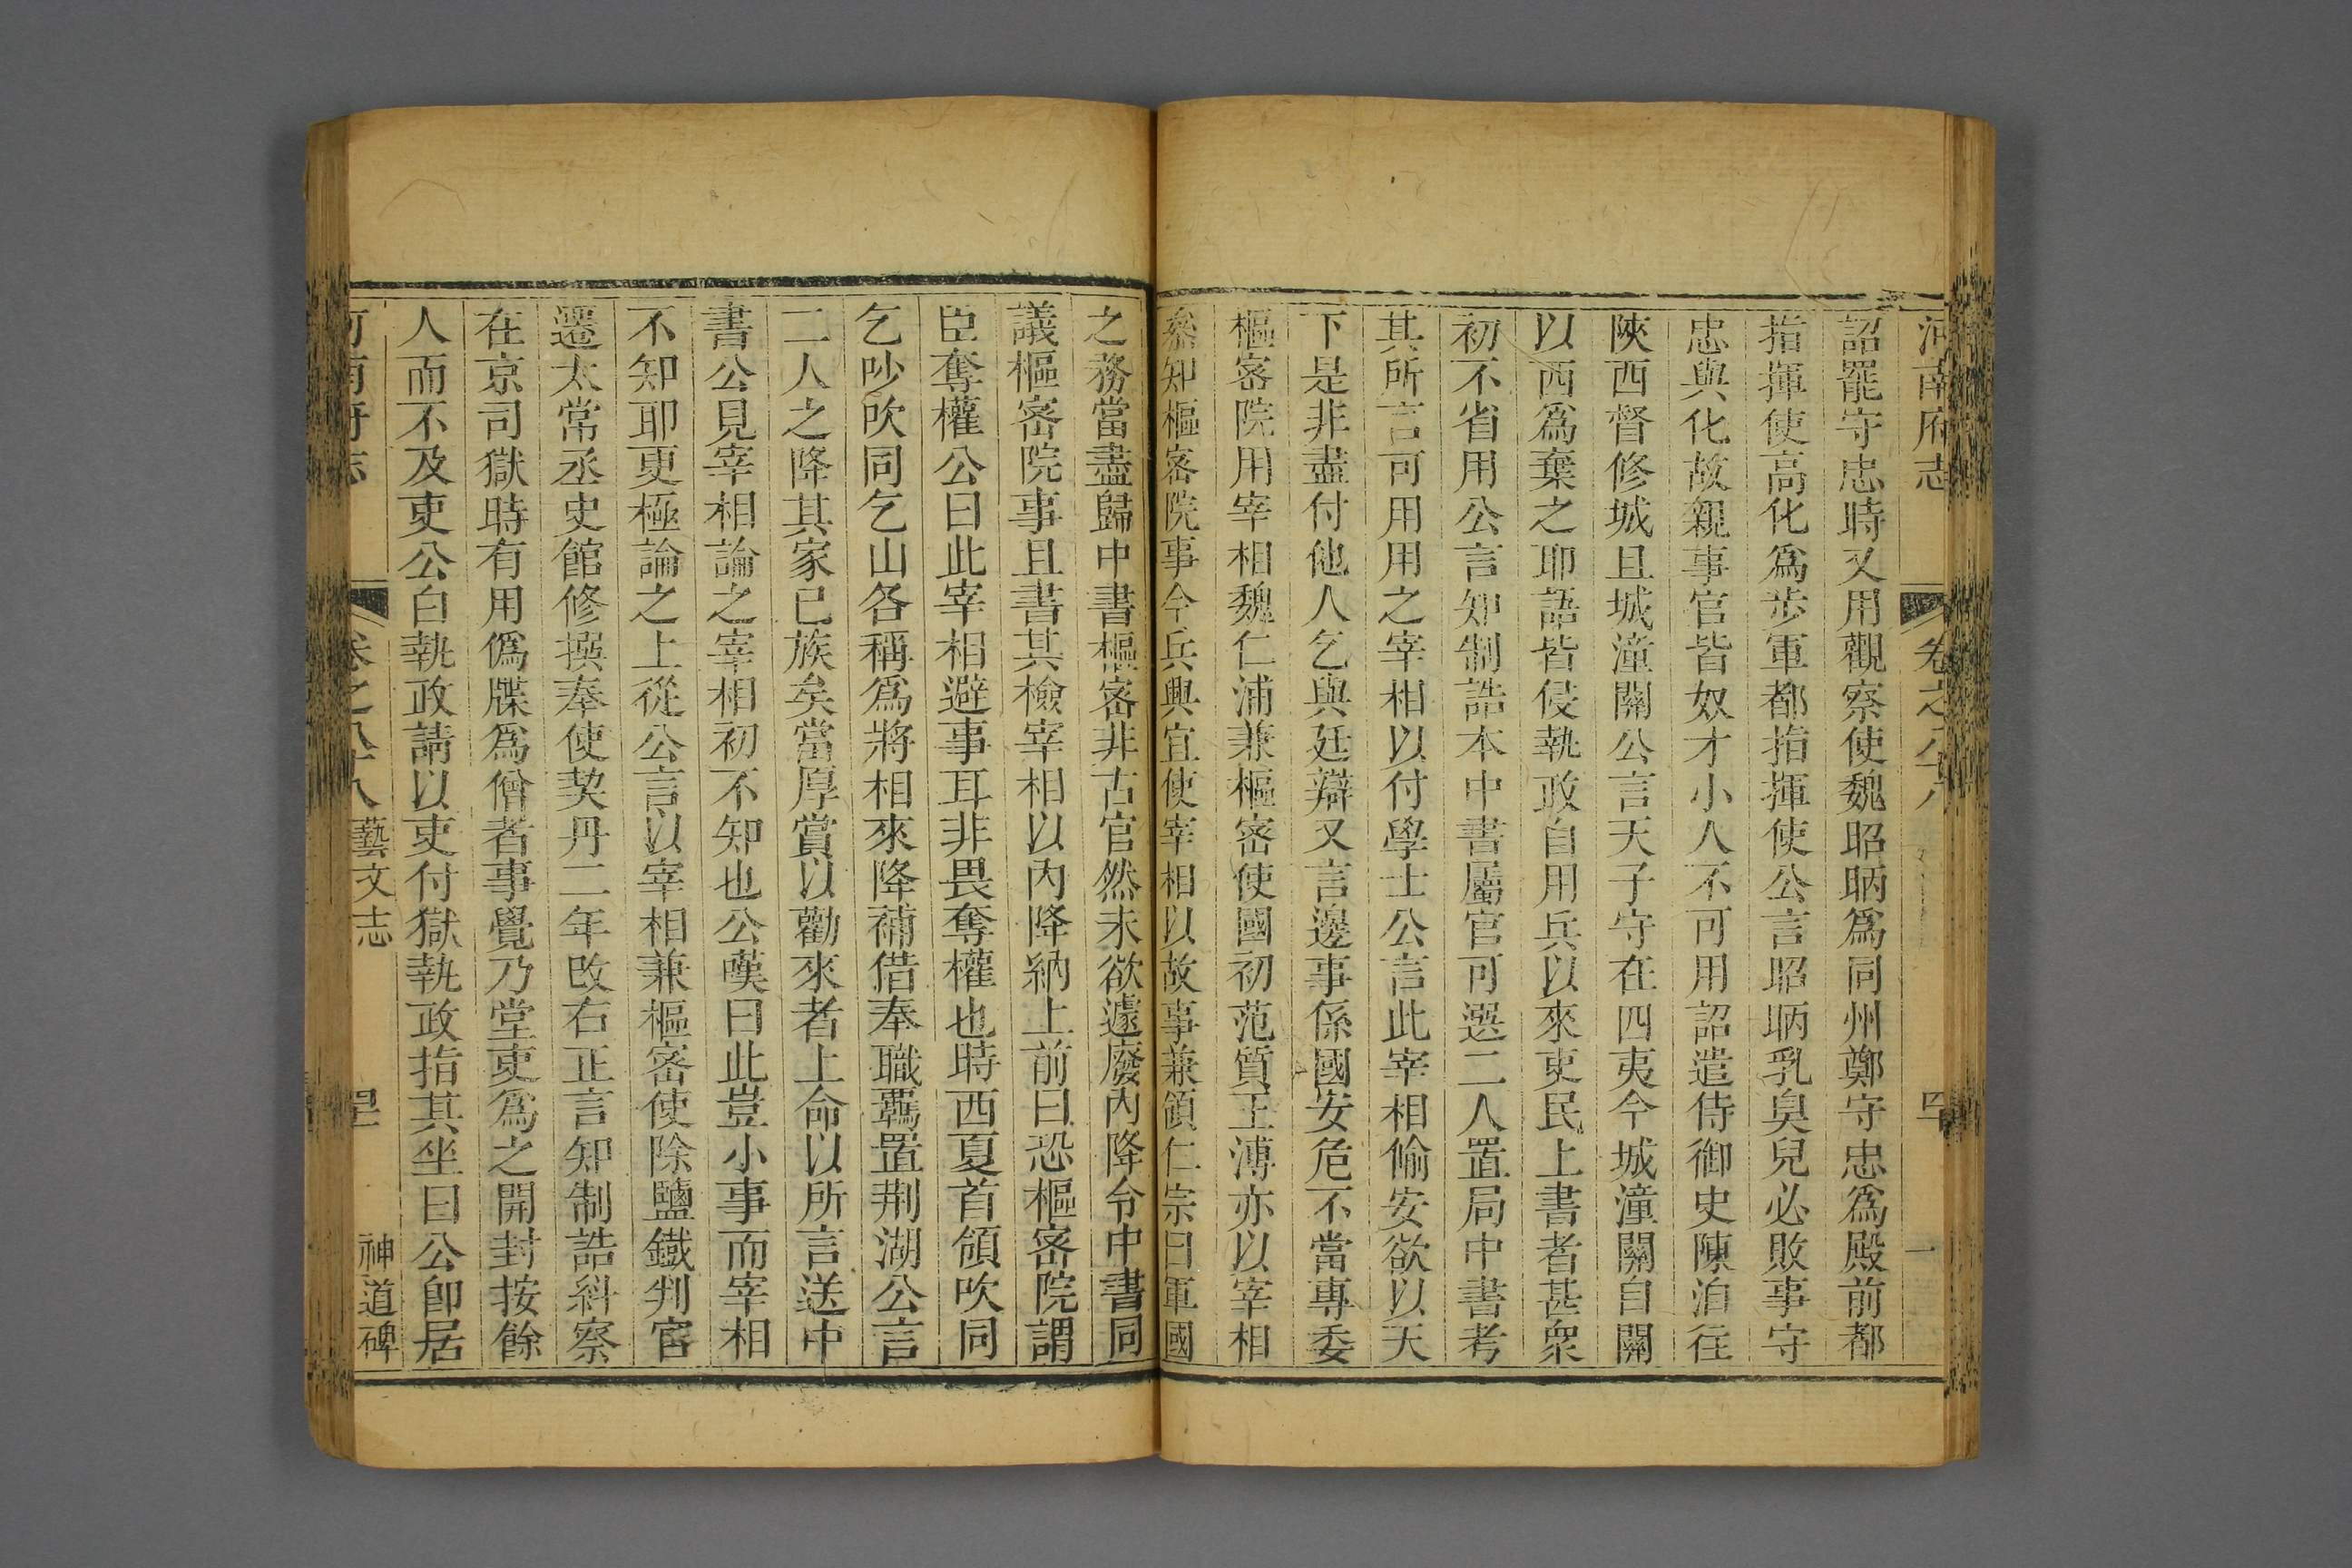 河南府志
卷之八十八
四十
詔罷守忠時又用觀察使魏昭昞爲同州鄭守忠爲殿前都
指揮使高化爲步軍都指揮使公言昭昞乳臭兒必敗事守
忠與化故親事官皆奴才小人不可用詔遣侍御史陳洎往
陝西督修城且城潼關公言天子守在四夷今城潼關自關
以西爲棄之耶語皆侵執政自用兵以來吏民上書者甚衆
初不省用公言知制誥本中書屬官可選二人置局中書考
其所言可用用之宰相以付學士公言此宰相偷安欲以天
下是非盡付他人乞與廷辯又言邊事係國安危不當專委
樞密院用宰相魏仁浦兼樞密使國初范質王溥亦以宰相
叅知樞密院事今兵興宜使宰相以故事兼領仁宗曰軍國
之務當盡歸中書樞密非古官然未欲遽廢內降令中書同
議樞密院事且書其檢宰相以內降納上前曰恐樞密院謂
臣奪權公曰此宰相避事耳非畏奪權也時西夏首領吹同
乞吵吹同乞山各稱爲將相來降補借奉職羈置荆湖公言
二人之降其家已族矣當厚賞以勸來者上命以所言送中
書公見宰相論之宰相初不知也公嘆曰此豈小事而宰相
不知耶更極論之上從公言以宰相兼樞密使除鹽鐵判官
遷太常丞史館修撰奉使契丹二年改右正言知制誥糾察
在京司獄時有用僞牒爲僧者事覺乃堂吏爲之開封按餘
人而不及吏公白執政請以吏付獄執政指其坐曰公卽居
河南府志
卷之八十八
藝文志
神道碑